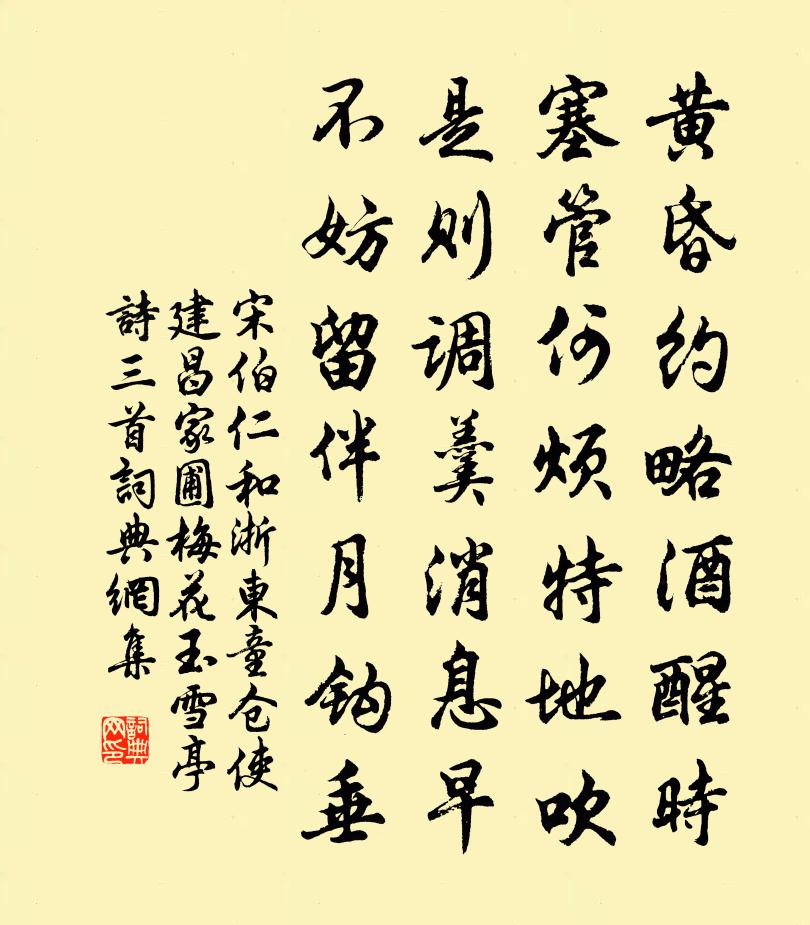 黄昏约略酒醒時
塞管何烦特地吹
是则调羹消息早
不妨留伴月钩垂
宋伯仁和浙東童仓使
建昌家圃梅花玉雪亭
詩三首詞典網集
詞典網印